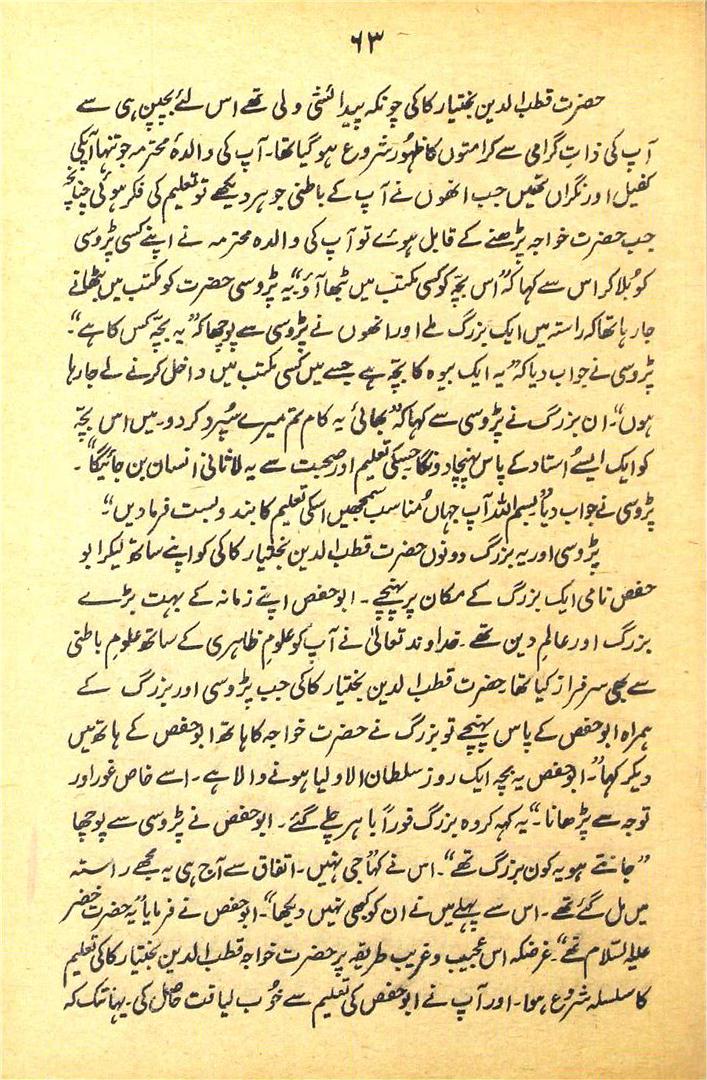 ۶۳
حضرت قطب الدین بختیار کاکی چونکہ پیدائشی ولی تھے اس لئے بچپن ہی سے
آپ کی ذاتِ گرامی سے کرامتوں کا ظہور شروع ہو گیا تھا۔ آپ کی والدۂ محترمہ جو تنہا آپکی
کفیل اور نگراں تھیں جب انھوں نے آپ کے باطنی جوہر دیکھے تو تعلیم کی فکر ہوئی چنانچہ
جب حضرت خواجہ پڑھنے کے قابل ہوئے تو آپ کی والدہ محترمہ نے اپنے کسی پڑوسی
کو بُلا کر اس سے کہا کہ "اس بچّہ کو کسی مکتب میں بٹھا آؤ" یہ پڑوسی حضرت کو مکتب میں بٹھانے
جا رہا تھا کہ راستہ میں ایک بزرگ ملے اور انھوں نے پڑوسی سے پوچھا کہ "یہ بچّہ کس کا ہے"۔
پڑوسی نے جواب دیا کہ "یہ ایک بیوہ کا بچّہ ہے جسے میں کسی مکتب میں داخل کرنے لے جا رہا
ہوں"۔ ان بزرگ نے پڑوسی سے کہا کہ "بھائی یہ کام تم میرے سُپرد کر دو۔ میں اس بچّہ
کو ایک ایسے اُستاد کے پاس پہنچا دونگا جسکی تعلیم اور صحبت سے یہ لاثانی انسان بن جائیگا"۔
پڑوسی نے جواب دیا "بسم اللہ آپ جہاں مُناسب سمجھیں اسکی تعلیم کا بندوبست فرمادیں"۔
پڑوسی اور یہ بزرگ دونوں حضرت قطب الدین بختیار کاکی کو اپنے ساتھ لیکر ابو
حفص نامی ایک بزرگ کے مکان پر پہنچے۔ ابو حفص اپنے زمانہ کے بہت بڑے
بزرگ اور عالمِ دین تھے۔ خداوند تعالیٰ نے آپ کو علومِ ظاہری کے ساتھ علومِ باطنی
سے بھی سرفراز کیا تھا۔ حضرت قطب الدین بختیار کاکی جب پڑوسی اور بزرگ کے
ہمراہ ابو حفص کے پاس پہنچے تو بزرگ نے حضرت خواجہ کا ہاتھ ابو حفص کے ہاتھ میں
دیکر کہا "۔ ابو حفص یہ بچہ ایک روز سلطان الاولیا ہونے والا ہے۔ اسے خاص غور اور
توجہ سے پڑھانا۔" یہ کہہ کر وہ بزرگ فوراً باہر چلے گئے۔ ابو حفص نے پڑوسی سے پوچھا
"جانتے ہو یہ کون بزرگ تھے"۔ اس نے کہا "جی نہیں۔ اتفاق سے آج ہی یہ مجھے راستہ
میں مل گئے تھے۔ اس سے پہلے میں نے ان کو کبھی نہیں دیکھا"۔ ابو حفص نے فرمایا "یہ حضرت خضر
علیہ السلام تھے"۔ غرضکہ اس عجیب و غریب طریقہ پر حضرت خواجہ قطب الدین بختیار کاکی کی تعلیم
کا سلسلہ شروع ہوا۔ اور آپ نے ابو حفص کی تعلیم سے خوُب لیاقت حاصل کی۔ یہانتک کہ